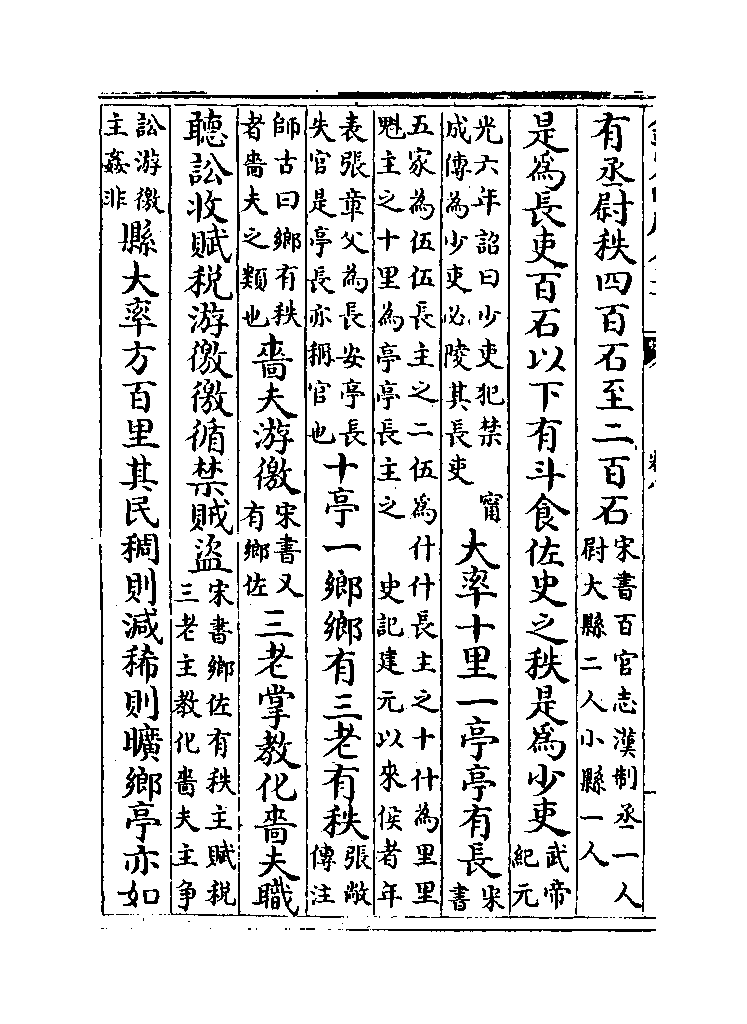 有丞尉秩四百石至二百石宋書百官志漢制丞一人尉大縣二人小縣一人
是為長吏百石以下有斗食佐史之秩是為少吏武帝紀元
光六年詔曰少吏犯禁甯成傳為少吏必陵其長吏大率十里一亭亭有長宋書
五家為伍伍長主之二伍為什什長主之十什為里里魁主之十里為亭亭長主之史記建元以來侯者年
表張章父為長安亭長失官是亭長亦稱官也十亭一鄉鄉有三老有秩張敞傳注
師古曰鄉有秩者嗇夫之類也嗇夫游徼宋書又有鄉佐三老掌教化嗇夫職
聽訟收賦稅游徼徼循禁賊盜宋書鄉佐有秩主賦稅三老主教化嗇夫主争
訟游徼主姦非縣大率方百里其民稠則減稀則曠鄉亭亦如